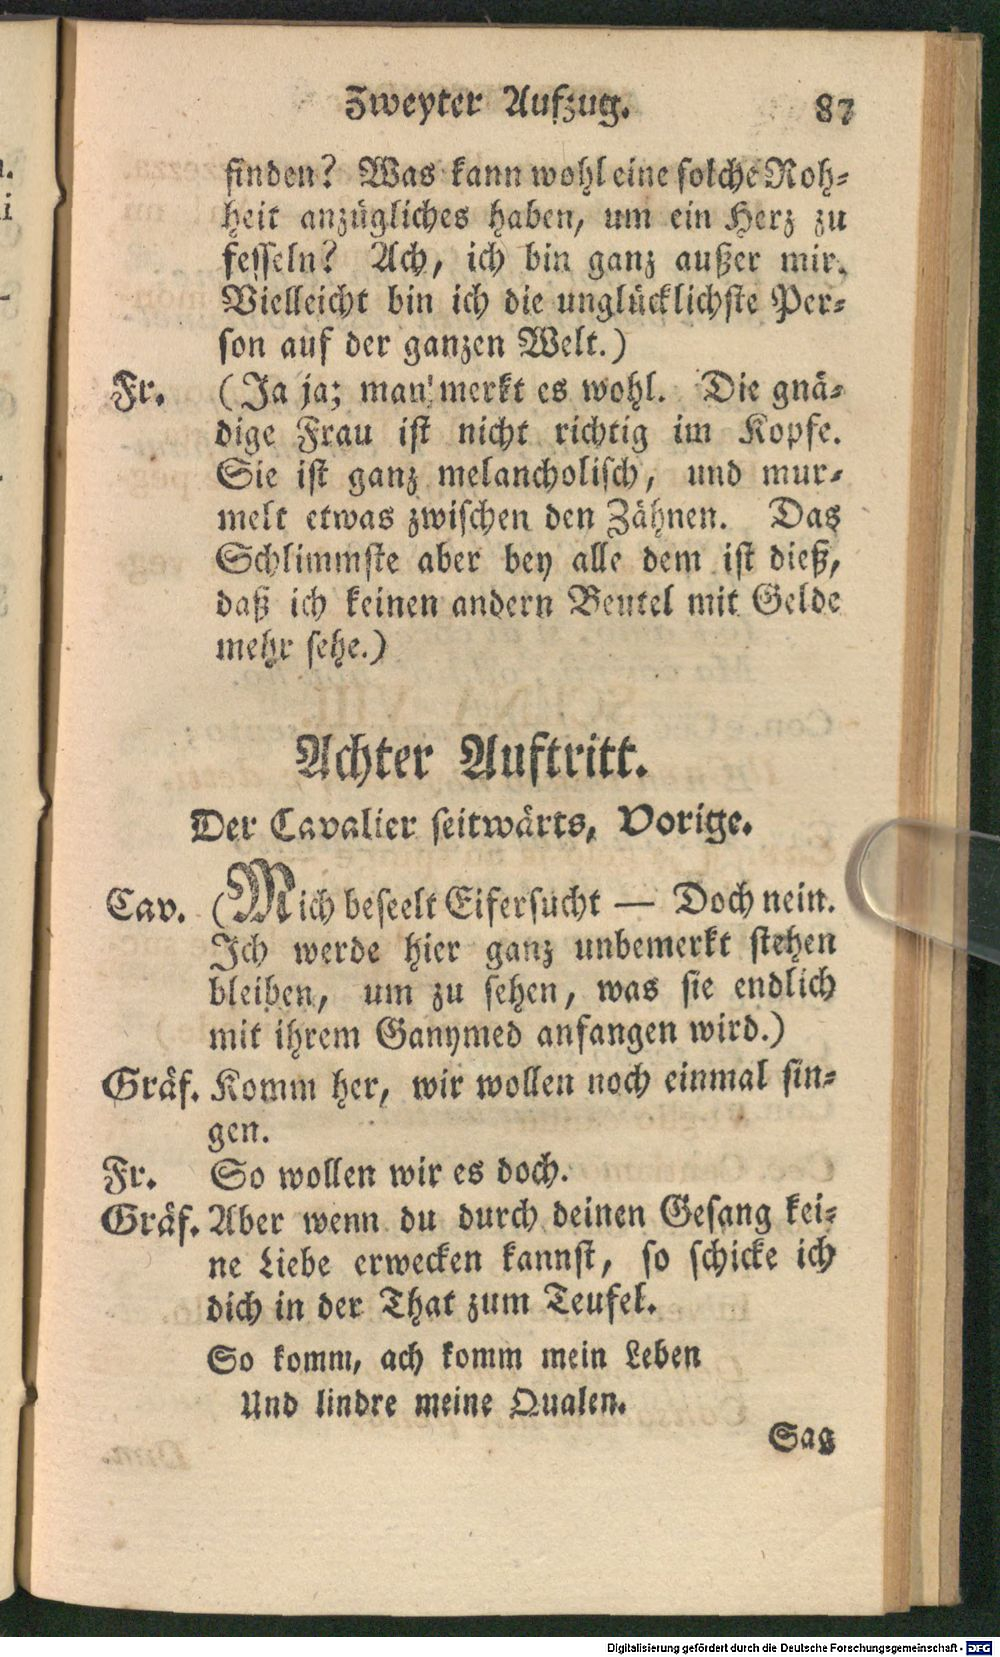 Zweyter Aufzug. 87
finden? Was kann wohl eine solche Roh-
heit anzügliches haben, um ein Herz zu
fesseln? Ach, ich bin ganz außer mir.
Vielleicht bin ich die unglücklichste Per-
son auf der ganzen Welt.)
Fr. (Ja ja; man merkt es wohl. Die gnä-
dige Frau ist nicht richtig im Kopfe.
Sie ist ganz melancholisch, und mur-
melt etwas zwischen den Zähnen. Das
Schlimmste aber bey alle dem ist dieß,
daß ich keinen andern Beutel mit Gelde
mehr sehe.)
Achter Auftritt.
Der Cavalier seitwärts, Vorige.
Cav. (Mich beseelt Eifersucht — Doch nein.
Ich werde hier ganz unbemerkt stehen
bleiben, um zu sehen, was sie endlich
mit ihrem Ganymed anfangen wird.)
Gräf. Komm her, wir wollen noch einmal sin-
gen.
Fr. So wollen wir es doch.
Gräf. Aber wenn du durch deinen Gesang kei-
ne Liebe erwecken kannst, so schicke ich
dich in der That zum Teufel.
So komm, ach komm mein Leben
Und lindre meine Qualen.
Sag
Digitalisierung gefördert durch die Deutsche Forschungsgemeinschaft - DFG